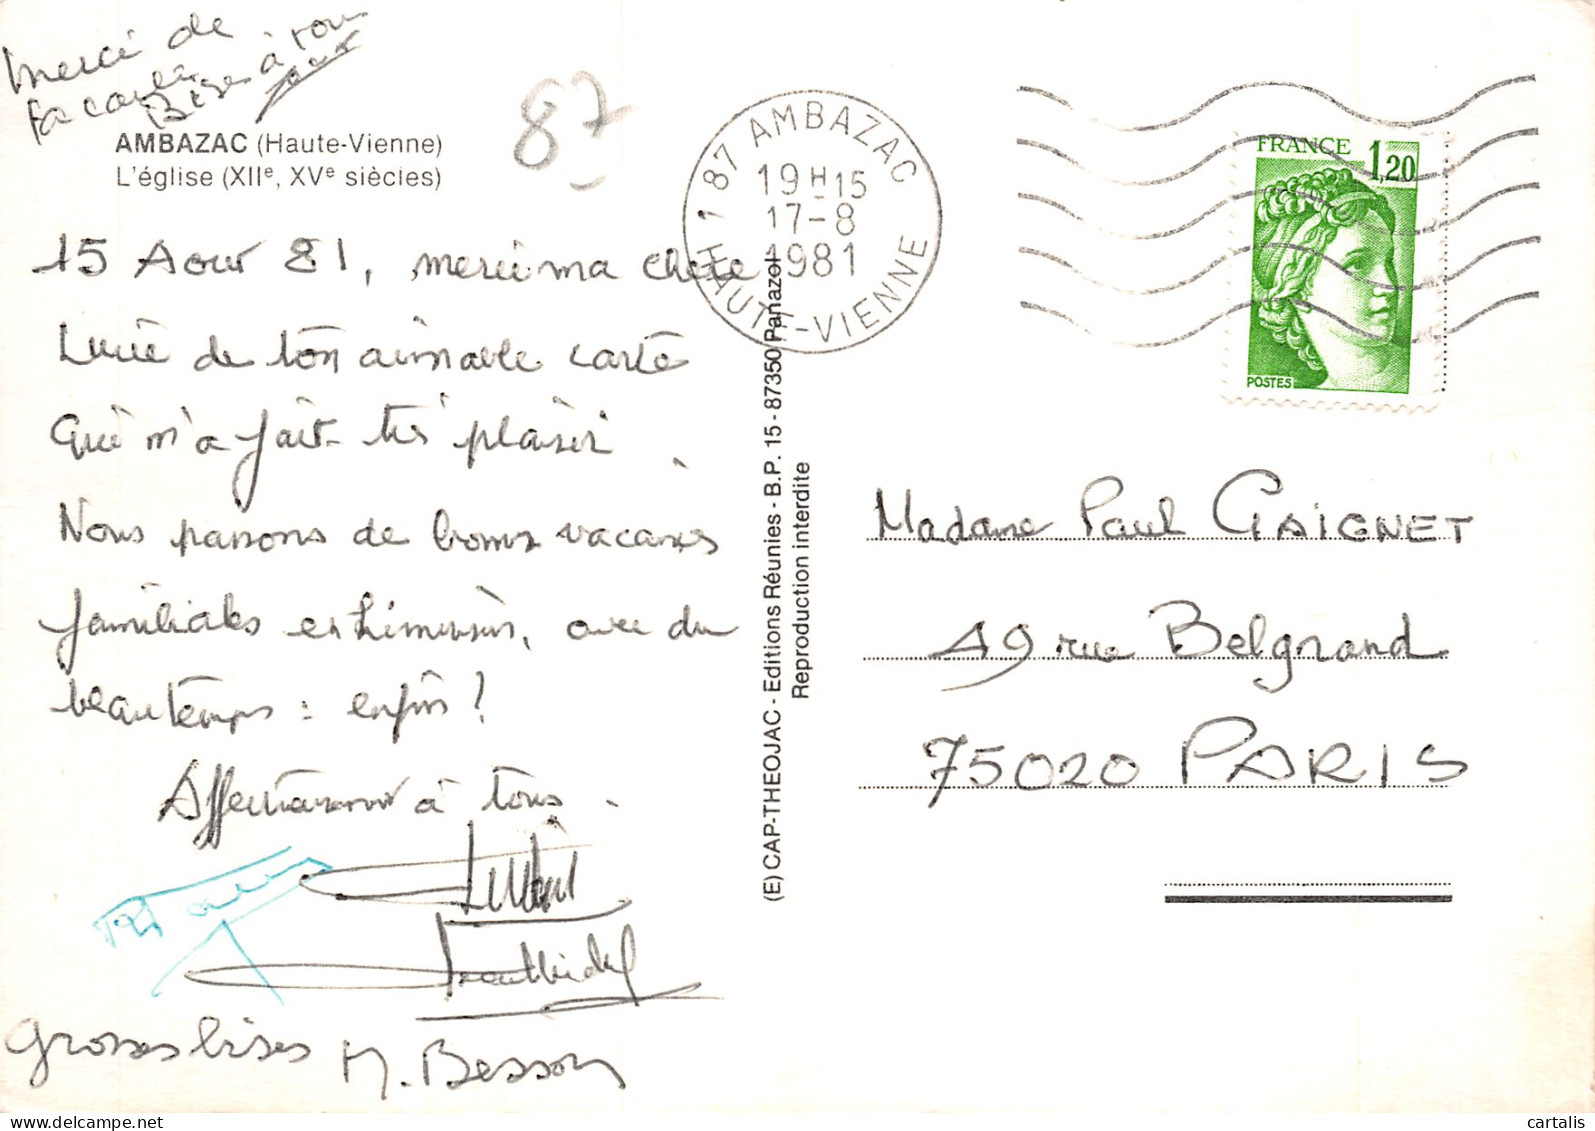 Merci de
ta carte
Bises à tous
AMBAZAC (Haute-Vienne)
L'église (XIIe, XVe siècles)
87
15 Aout 81, merci ma chère
Lucie de ton aimable carte
Qui m'a fait très plaisir.
Nous passons de bonnes vacances
familiales en Limousin, avec du
beau temps : enfin !
Affectueusement à tous.
Grosses bises M. Besson
(E) CAP-THEOJAC - Editions Réunies - B.P. 15 - 87350 Panazol
Reproduction interdite
87 AMBAZAC
19H15
17-8
1981
HAUTE-VIENNE
FRANCE 1,20
POSTES
Madame Paul GAIGNET
49 rue Belgrand
75020 PARIS
cartalis